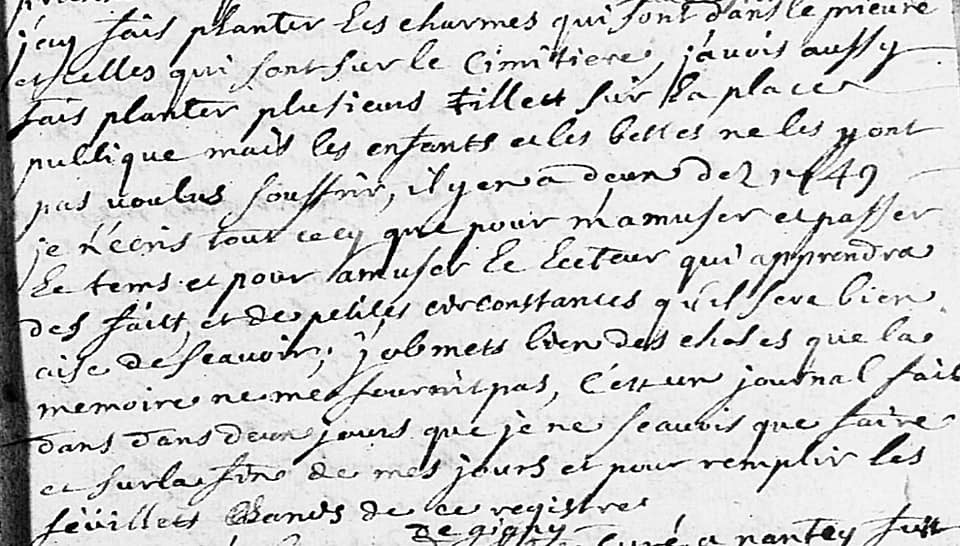 j'ay fais planter les charmes qui sont dans le prieuré
et celles qui sont sur le Cimitiere, j'avois aussy
fais planter plusieurs Tillett sur la place
publique mais les enfants et les bettes ne les y ont
pas voulus souffrir, il y en a deux de 1749
je n'ecris tout cecy que pour m'amuser et passer
le tems et pour amuser le lecteur qui apprendra
des faits et de petites circonstances qu'il sera bien
aise de scavoir, j'obmets bien des choses que la
memoire ne me fournit pas, C'est un journal fait
dans dans deux jours que je ne scavois que faire
et sur la fin de mes jours et pour remplir les
feüillets blancs de ce registre
De gigny
curé a nantey